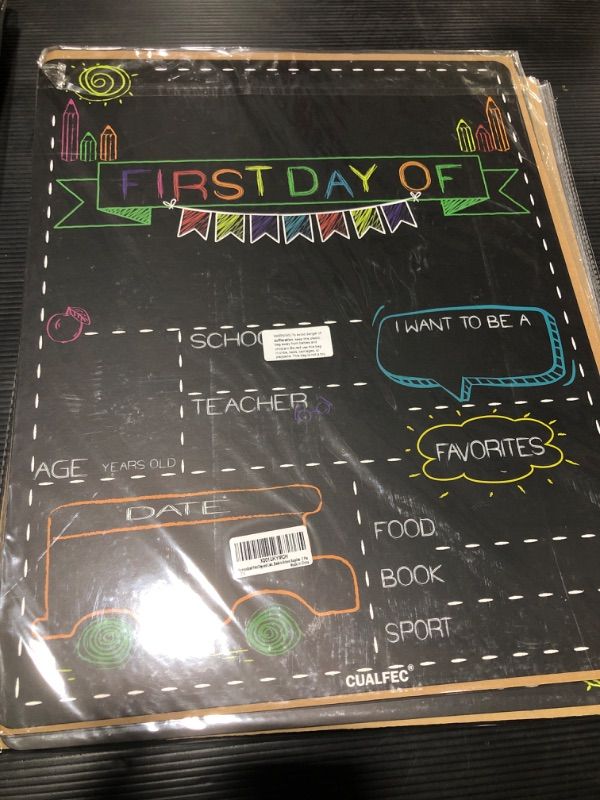 FIRST DAY OF
I WANT TO BE A
SCHOO
suffocation, keep this plastic
TEACHER
FAVORITES
AGE YEARS OLD
DATE
FOOD
BOOK
SPORT
CUALFEC®